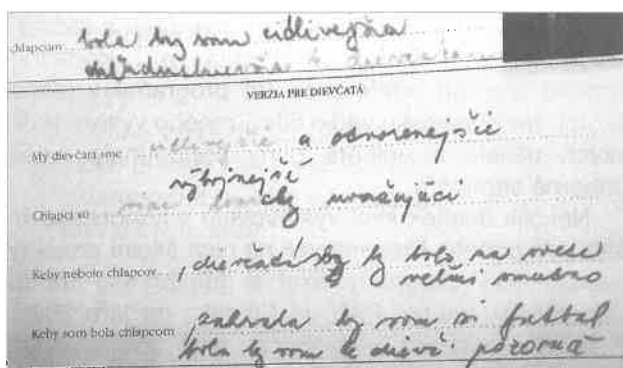 chlapcom bola by som citlivejšia
k dievčatám
VERZIA PRE DIEVČATÁ
My dievčatá sme citlivejšie a otvorenejšie
výbojnejší
Chlapci sú viac urážajúci
Keby nebolo chlapcov , dievčatá by to bolo na svete
veľmi smutno
Keby som bola chlapcom , zahrala by som si futbal
bola by som k dievč. pozorná